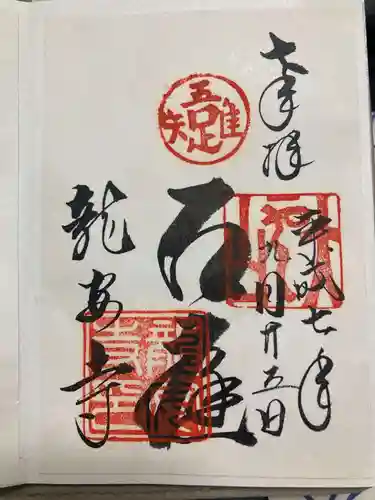 奉拝
平成七年
九月廿五日
吾唯足知
石庭
龍安寺